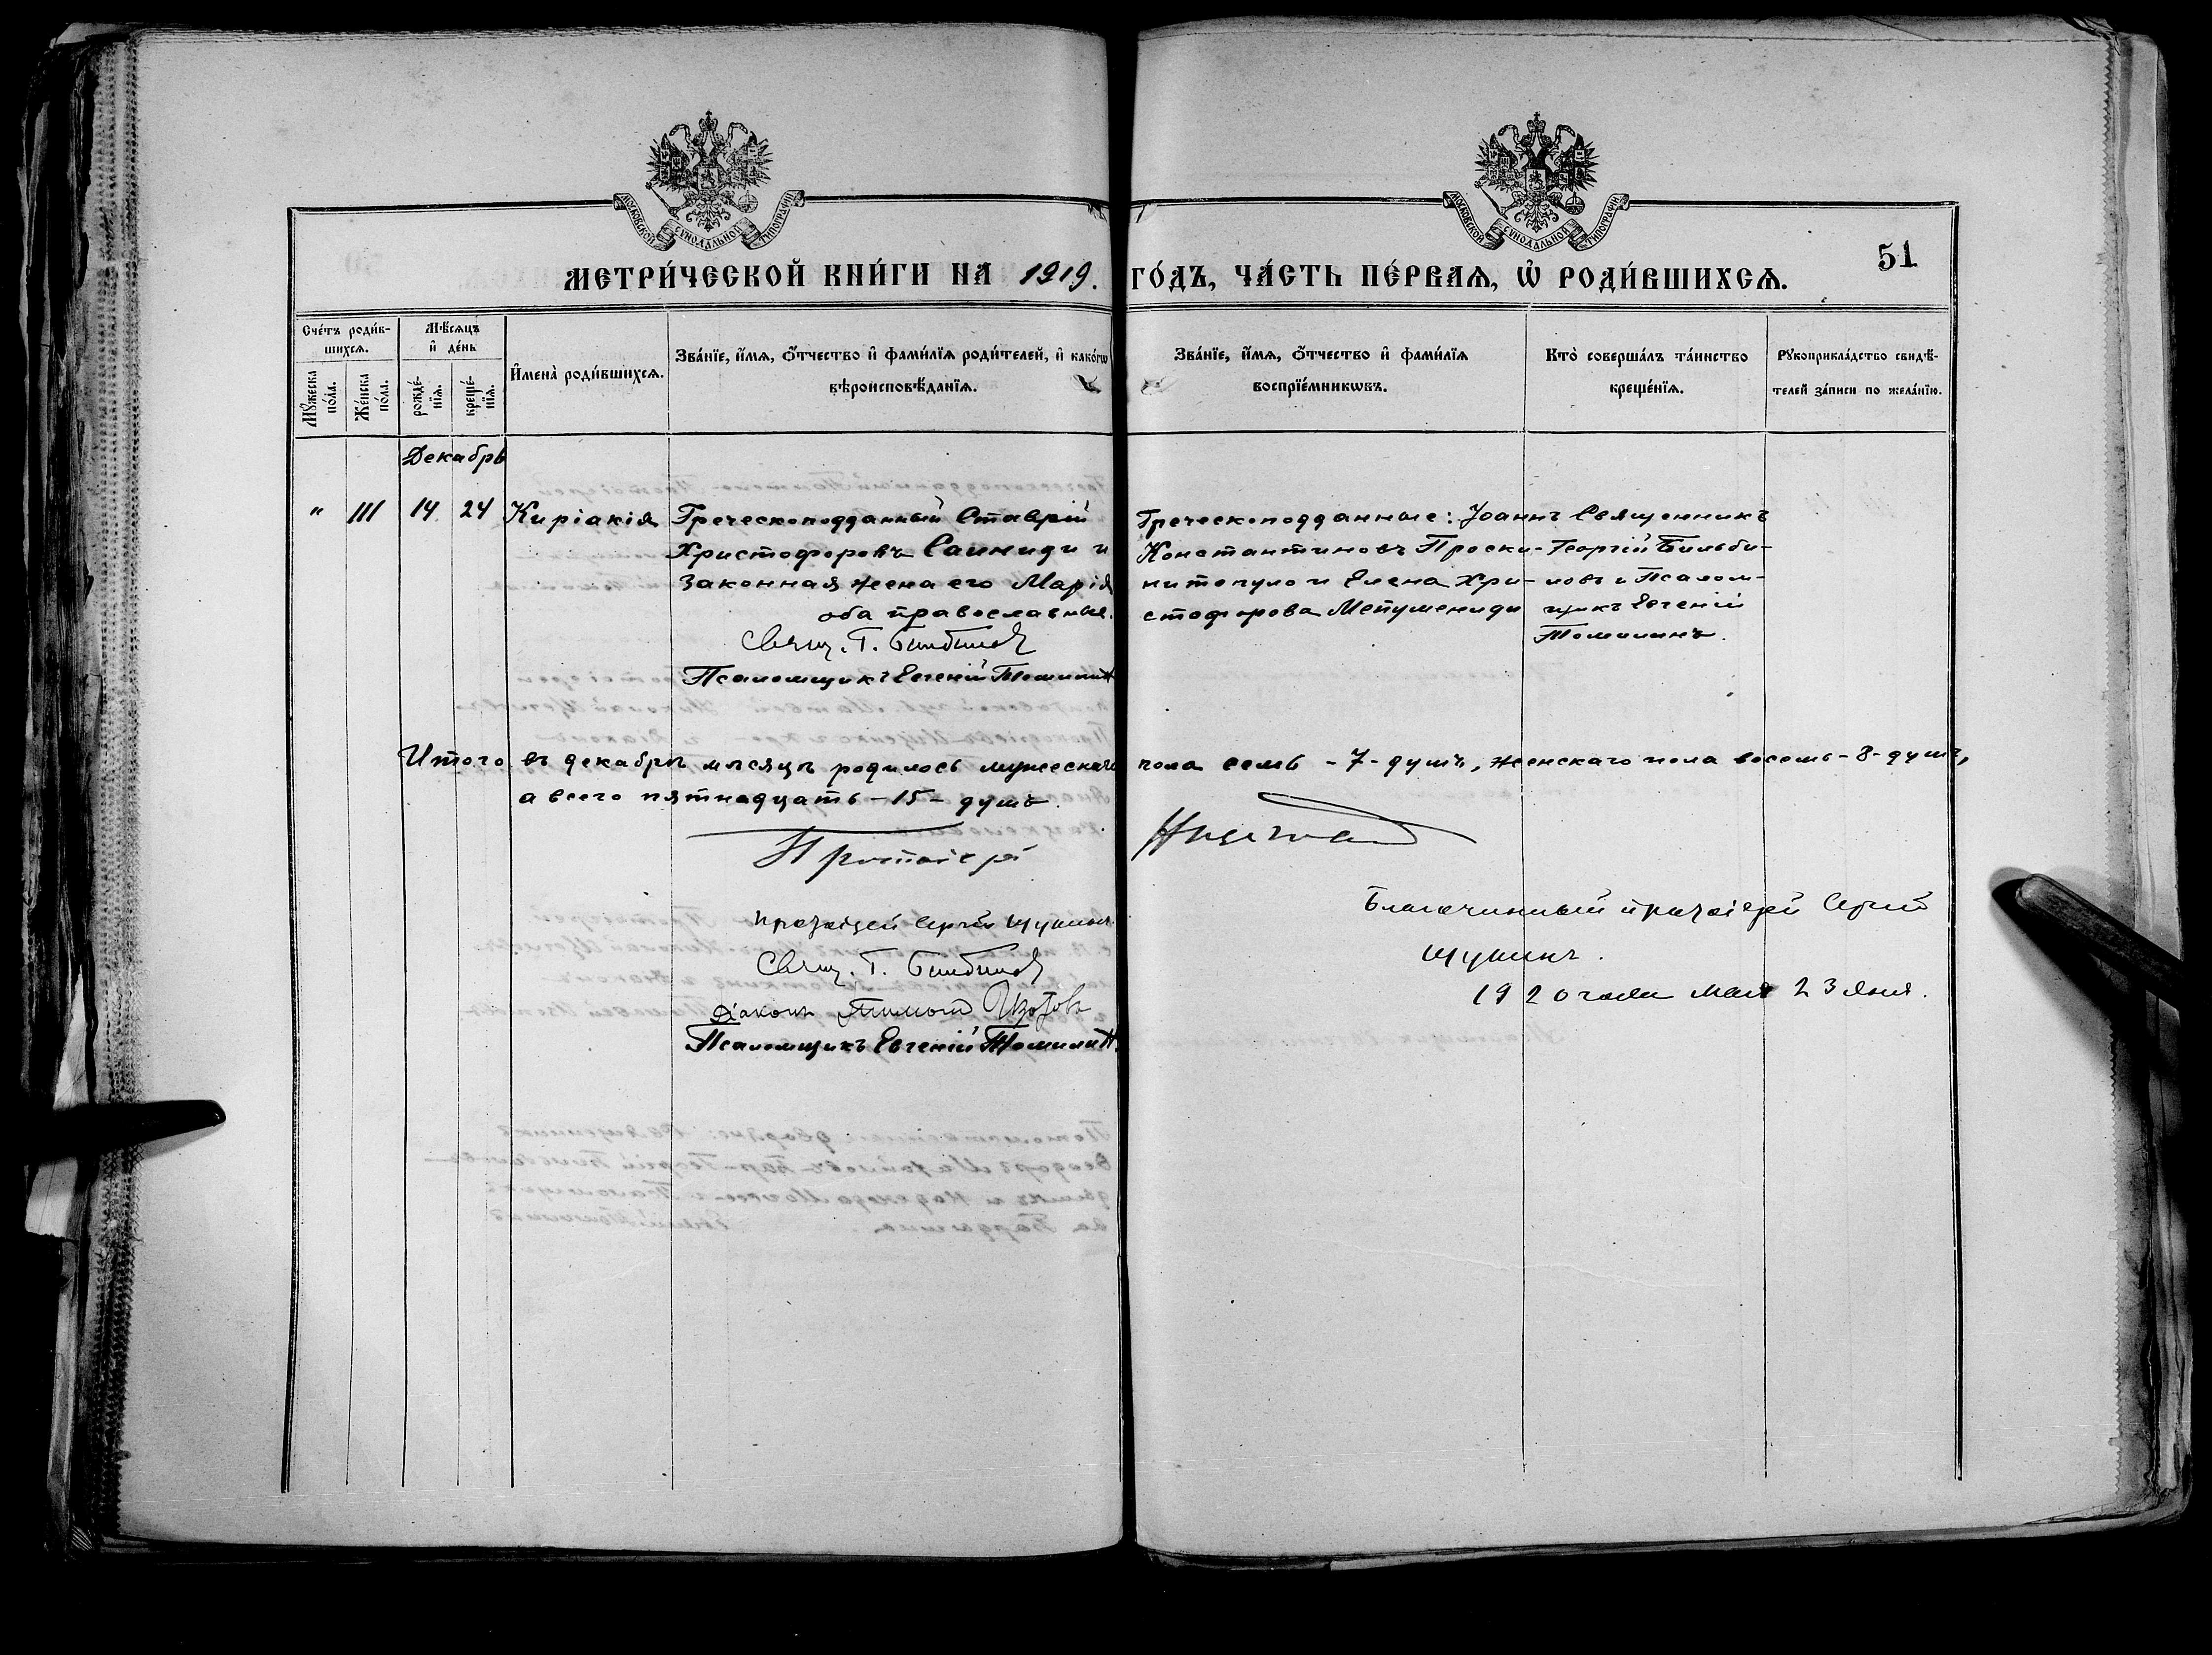 МОСКОВСКОЙ СѴНОДАЛЬНОЙ ТИПОГРАФІИ
МОСКОВСКОЙ СѴНОДАЛЬНОЙ ТИПОГРАФІИ
51
МЕТРИ́ЧЕСКОЙ КНИ́ГИ НА 1919. ГО́ДЪ, ЧА́СТЬ ПЕ́РВАѦ, Ѡ҆ РОДИ́ВШИХСѦ.
Сче́тъ роди́в-
шихсѧ.
Мꙋжеска по́ла.
Же́нска по́ла.
Мѣ́сѧцъ
и҆ де́нь
рожде́-
нїѧ.
креще́-
нїѧ.
И҆мена̀ роди́вшихсѧ.
Зва́нїе, и҆́мѧ, ѻ҆́тчество и҆ фами́лїѧ роди́телей, и҆ како́гѡ
вѣроисповѣ́данїѧ.
Зва́нїе, и҆́мѧ, ѻ҆́тчество и҆ фами́лїѧ
воспрїе́мникѡвъ.
Кто̀ соверша́лъ та́инство
креще́нїѧ.
Рꙋкоприкла́дство свидѣ́-
телей за́писи по жела́нїю.
Декабрь
" 111 14 24 Киріакія
Греческоподданный Ставрій
Христофоровъ Саиниди и
законная жена его Марія
оба православные.
Свящ. Г. Бильбиловъ
Псаломщикъ Евгеній Томилинъ
Греческоподданные: Іоаннъ
Константиновъ Проски-
нитопуло и Елена Хри-
стофорова Мепумениди
Священникъ
Георгій Бильби-
ловъ и Псалом-
щикъ Евгеній
Томилинъ.
Итого въ декабрѣ мѣсяцѣ родилось мужескаго пола семь - 7 - душъ, женскаго пола восемь - 8 - душъ,
а всего пятнадцать - 15 - душъ.
Протоіерей
протоіерей Сергій Щукинъ
Свящ. Г. Бильбиловъ
Діаконъ Изотовъ
Псаломщикъ Евгеній Томилинъ.
Благочинный протоіерей Сергій
Щукинъ.
1920 года мая 23 дня.